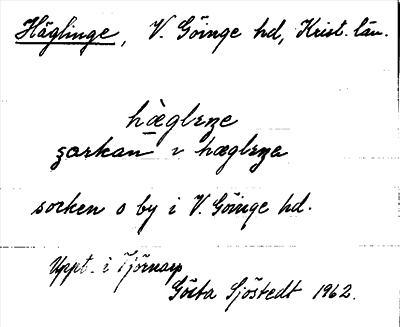 Häglinge, V. Göinge hd, Krist. län.
hæ̀glɛŋe
sɑrkan i hæglɛŋa
socken o by i V. Göinge hd.
Uppt. i Tjörnarp
Gösta Sjöstedt 1962.